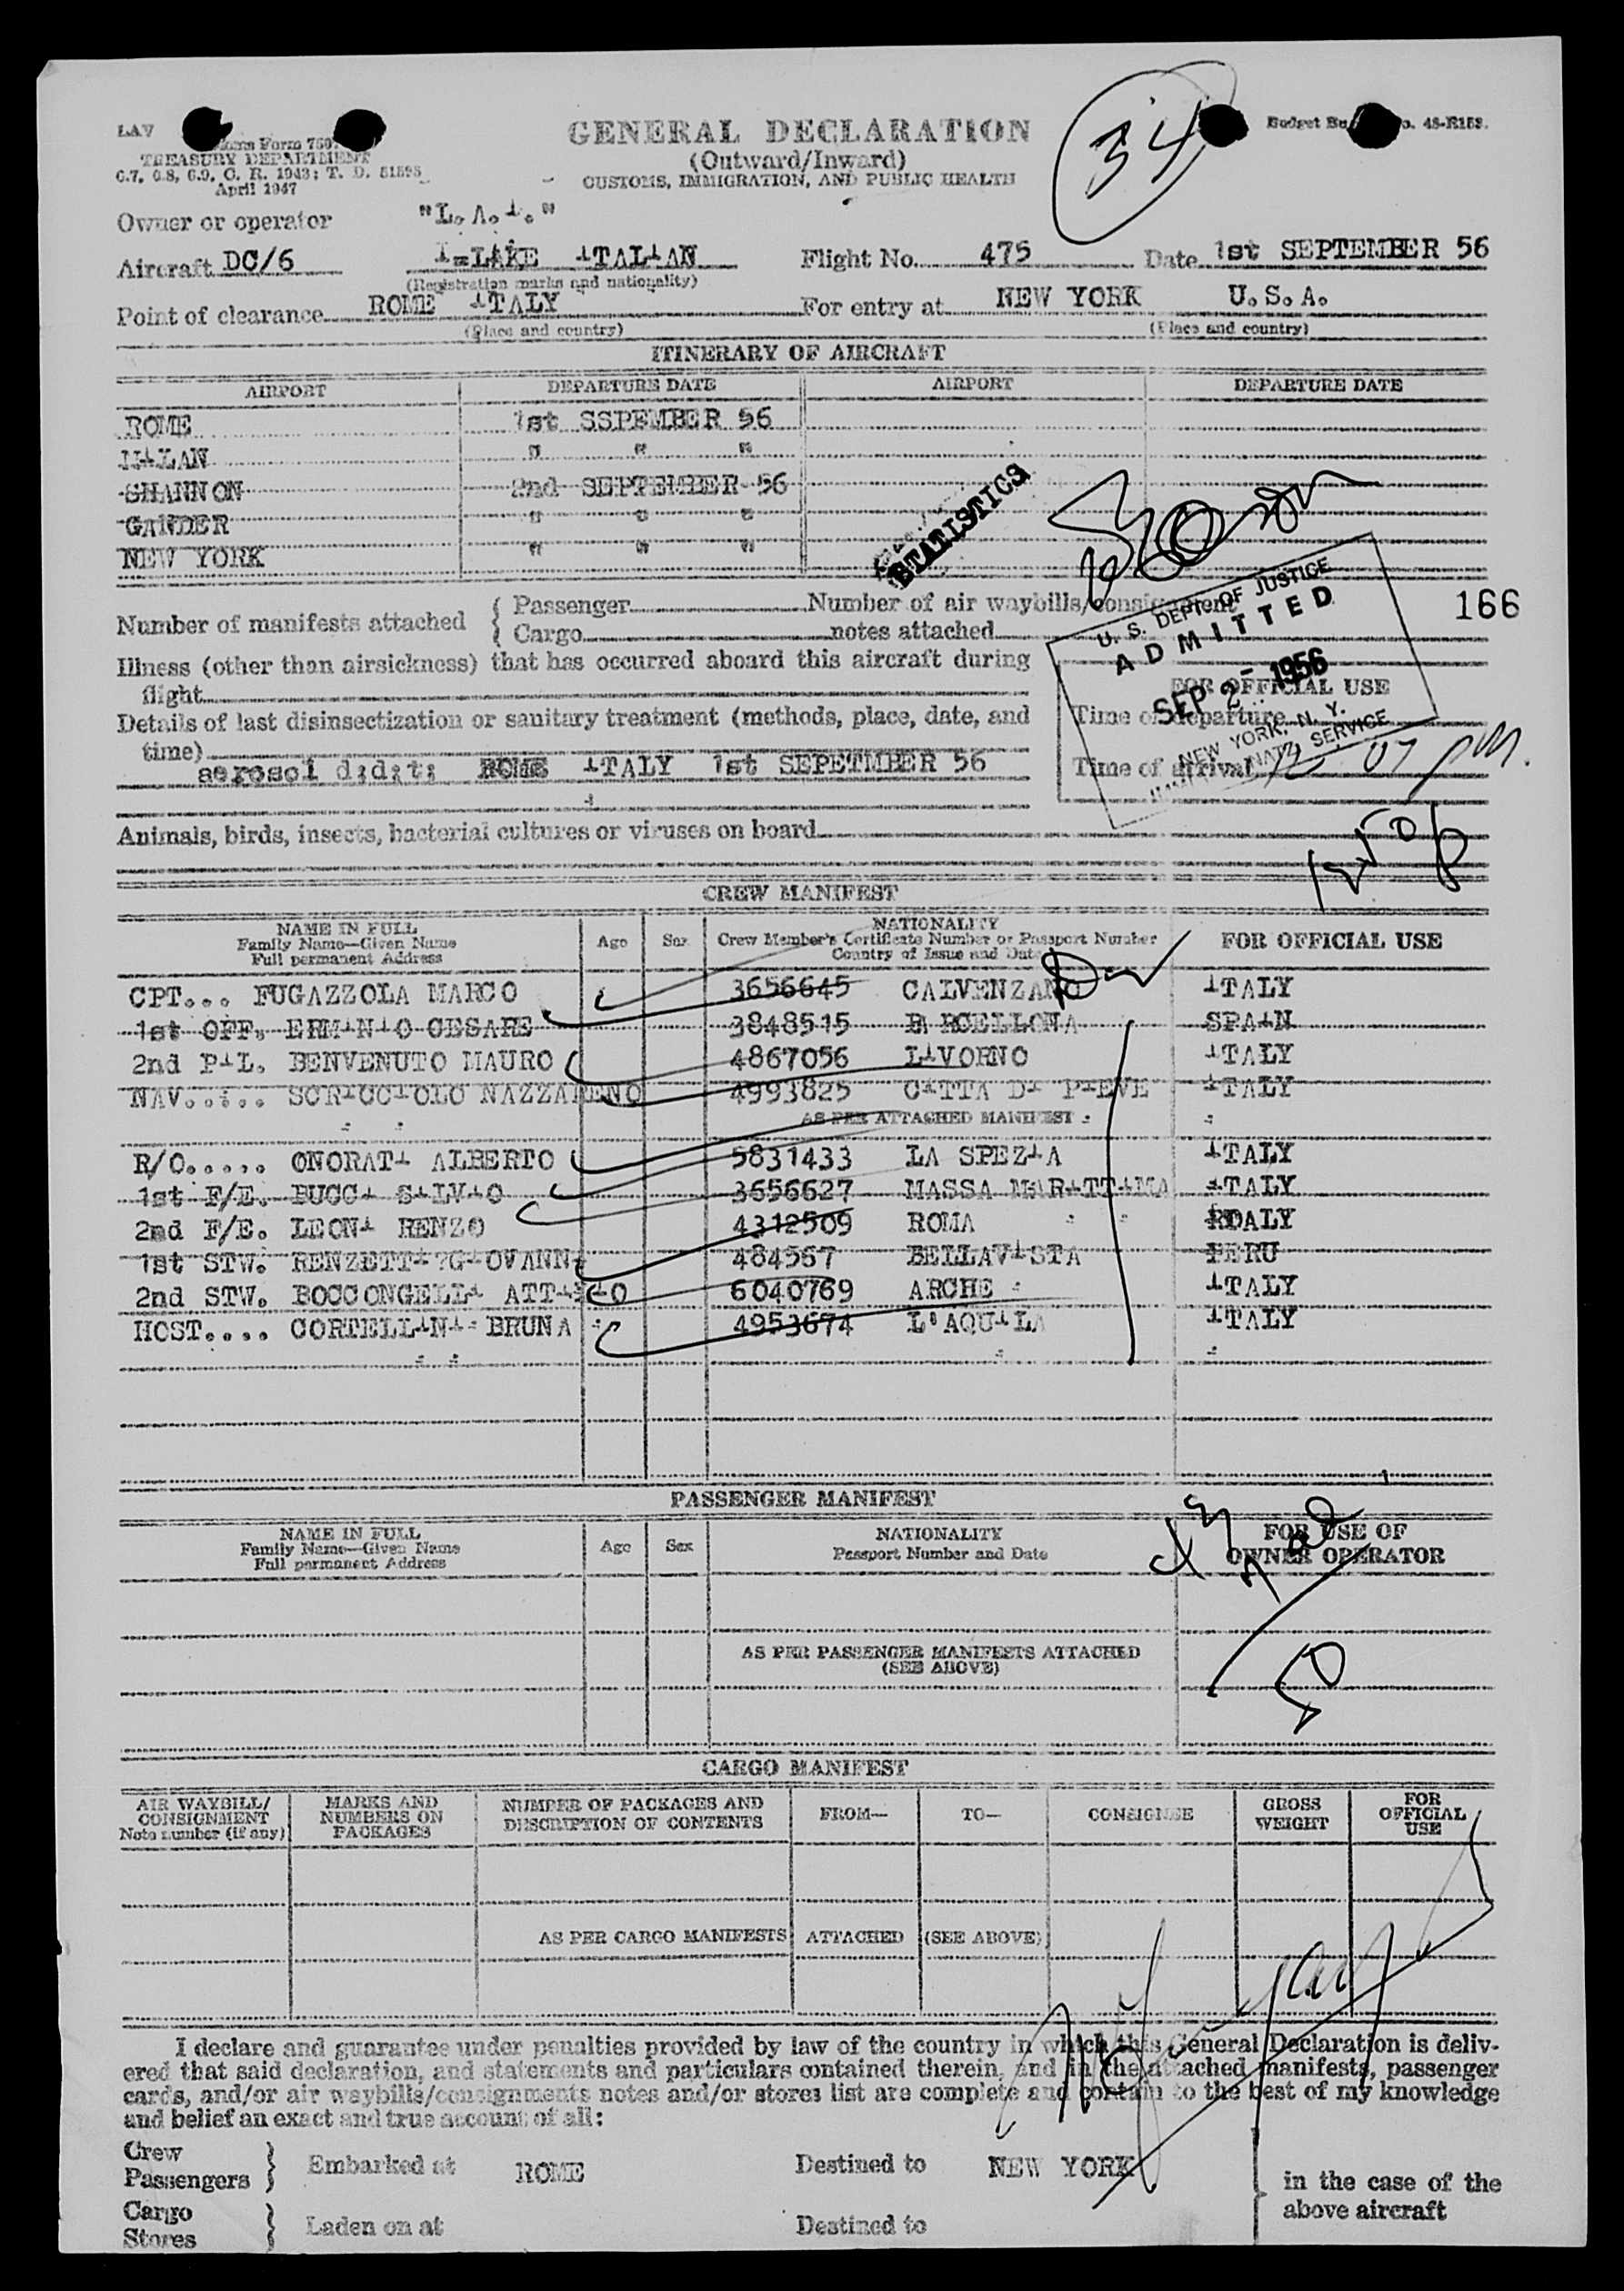 LAV
GENERAL DECLARATION
(Outward/Inward)
CUSTOMS, IMMIGRATION, AND PUBLIC HEALTH
34
TREASURY DEPARTMENT
April 1947
Owner or operator "L.A.I."
Aircraft DC/6 I=LAKE ITALIAN Flight No. 475 Date 1st SEPTEMBER 56
(Registration marks and nationality)
Point of clearance ROME ITALY For entry at NEW YORK U.S.A.
(Place and country) (Place and country)
ITINERARY OF AIRCRAFT
AIRPORT DEPARTURE DATE AIRPORT DEPARTURE DATE
ROME 1st SSPEMBER 56
MILAN " " "
SHANNON 2nd SEPTEMBER 56
GANDER " " "
NEW YORK " " "
STATISTICS
Number of manifests attached { Passenger Cargo
Number of air waybills/consignment notes attached
166
U. S. DEPT. OF JUSTICE
ADMITTED
SEP 2 - 1956
NEW YORK, N. Y.
Illness (other than airsickness) that has occurred aboard this aircraft during
flight
FOR OFFICIAL USE
Details of last disinsectization or sanitary treatment (methods, place, date, and
time)
Time of departure
aerosol d;d;t; ROME ITALY 1st SEPETMBER 56
Time of arrival 12 07 pm.
Animals, birds, insects, bacterial cultures or viruses on board
CREW MANIFEST
NAME IN FULL
Family Name—Given Name
Full permanent Address
Age Sex
NATIONALITY
Crew Member's Certificate Number or Passport Number
Country of Issue and Date
FOR OFFICIAL USE
CPT... FUGAZZOLA MARCO 3656645 CALVENZANO ITALY
1st OFF. ERMINIO CESARE 3848515 BARCELLONA SPAIN
2nd PIL. BENVENUTO MAURO 4867056 LIVORNO ITALY
NAV..... SCRICCIOLO NAZZARENO 4993825 CITTA DI PIEVE ITALY
AS PER ATTACHED MANIFEST
R/O..... ONORATI ALBERTO 5831433 LA SPEZIA ITALY
1st F/E. BUCCI SILVIO 3656627 MASSA MARITTIMA ITALY
2nd F/E. LEONI RENZO 4312509 ROMA
1st STW. RENZETTI?GIOVANNI 484567 BELLAVISTA PERU
2nd STW. BOCCONGELLI ATTILIO 6040769 ARCHE ITALY
HOST.... CORTELLINI BRUNA 4953674 L'AQUILA ITALY
PASSENGER MANIFEST
NAME IN FULL
Family Name—Given Name
Full permanent Address
Age Sex
NATIONALITY
Passport Number and Date
FOR USE OF
OWNER OPERATOR
AS PER PASSENGER MANIFESTS ATTACHED
(SEE ABOVE)
50
CARGO MANIFEST
AIR WAYBILL/
CONSIGNMENT
Note number (if any)
MARKS AND
NUMBERS ON
PACKAGES
NUMBER OF PACKAGES AND
DESCRIPTION OF CONTENTS
FROM— TO— CONSIGNEE
GROSS
WEIGHT
FOR
OFFICIAL
USE
AS PER CARGO MANIFESTS ATTACHED (SEE ABOVE)
I declare and guarantee under penalties provided by law of the country in which this General Declaration is deliv-
ered that said declaration, and statements and particulars contained therein, and in the attached manifests, passenger
cards, and/or air waybills/consignments notes and/or stores list are complete and contain to the best of my knowledge
and belief an exact and true account of all:
Crew
Passengers } Embarked at ROME Destined to NEW YORK
in the case of the
above aircraft
Cargo
Stores } Laden on at Destined to